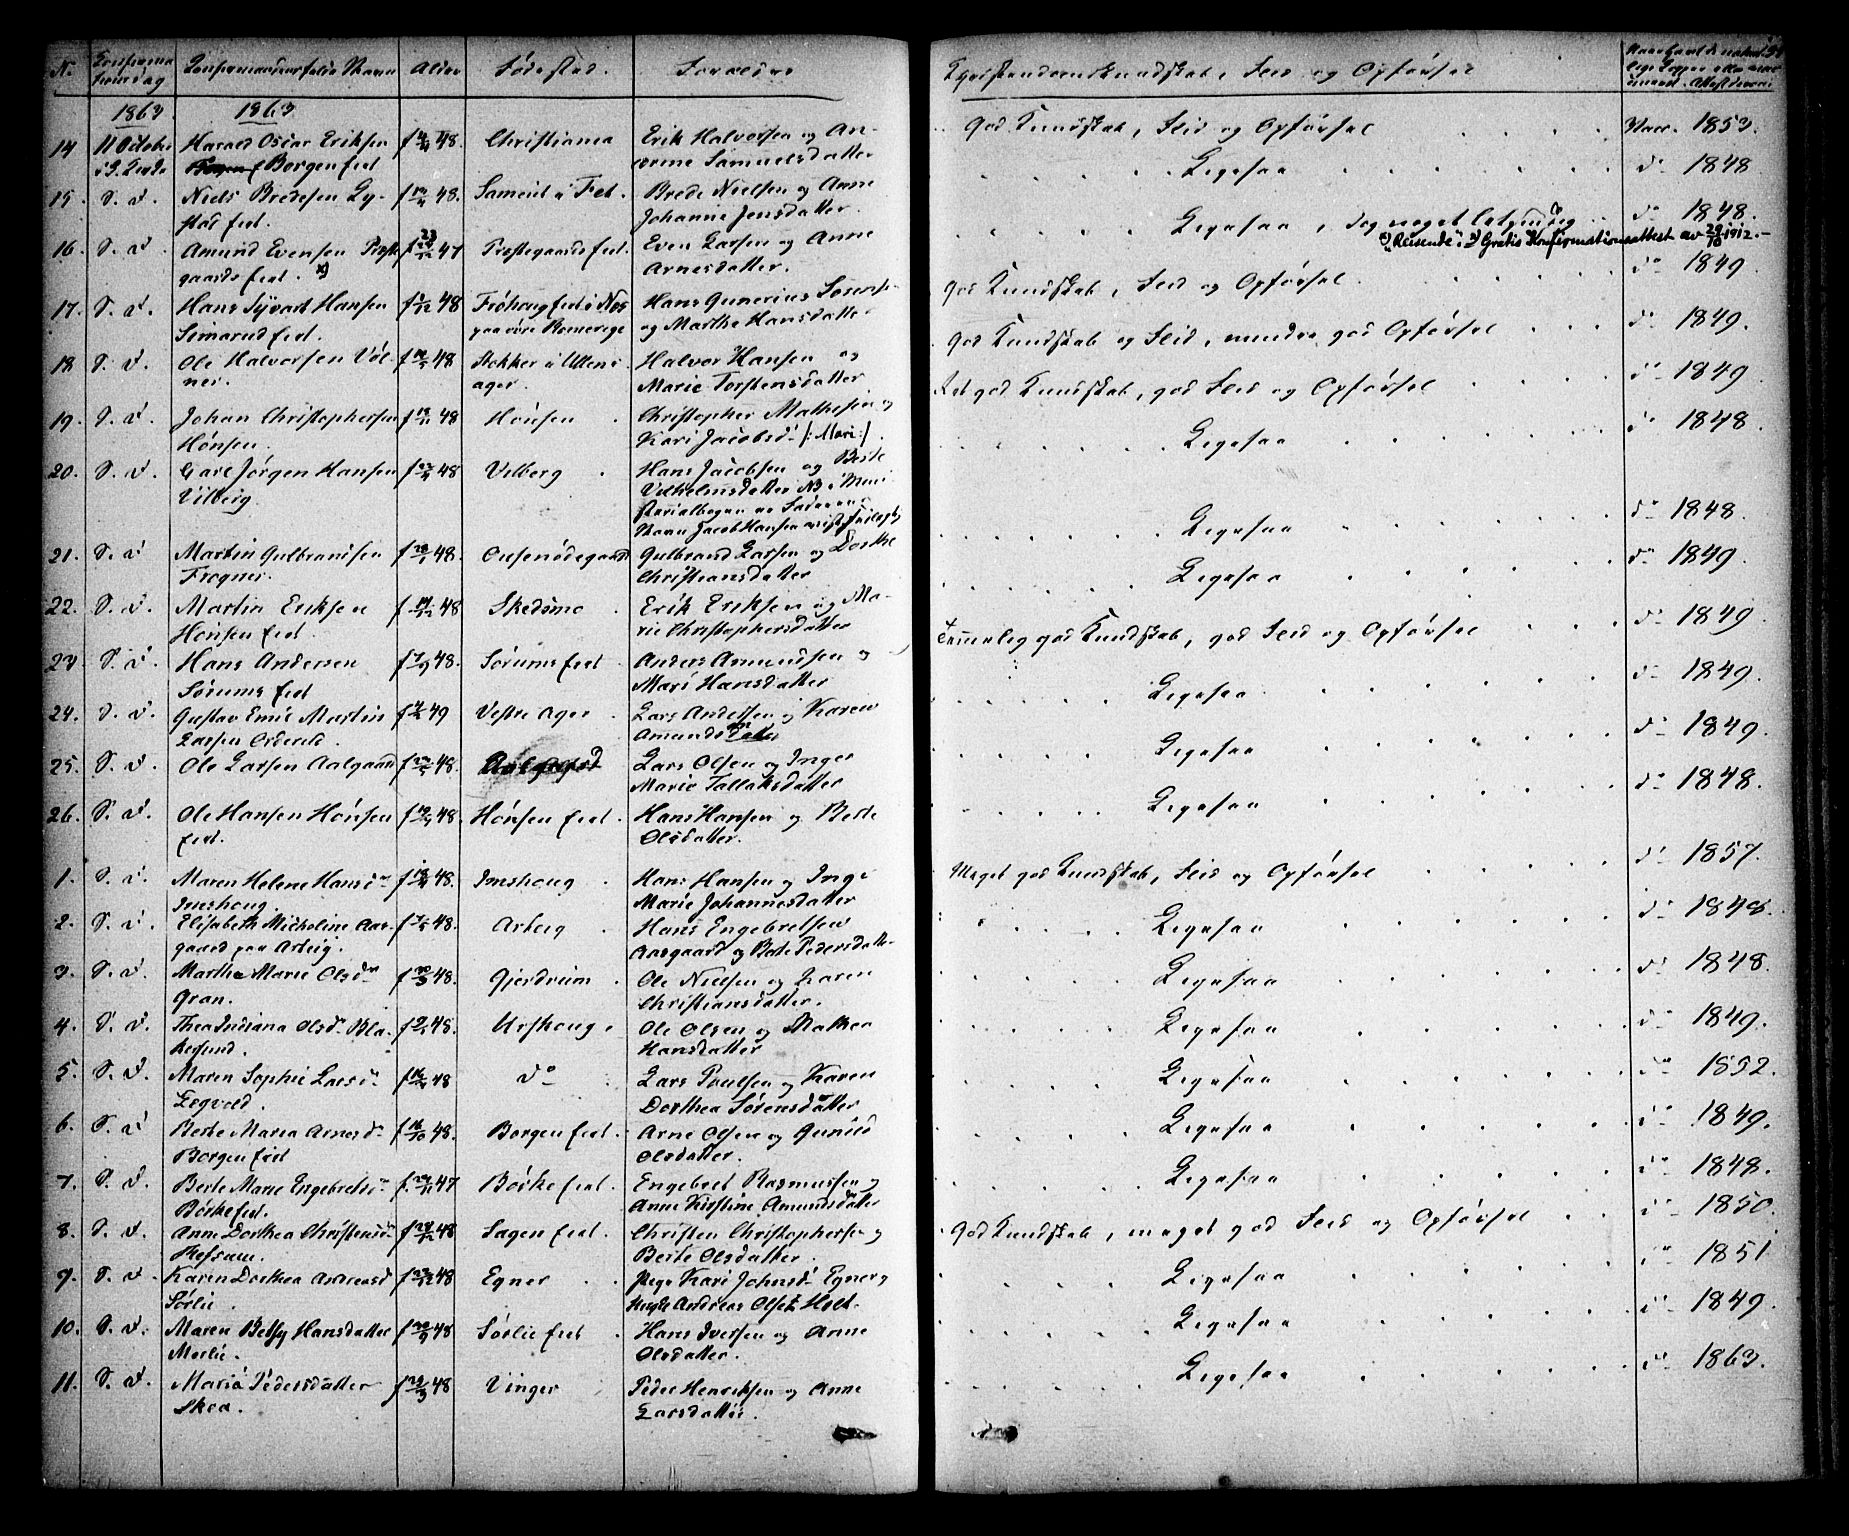 N.
Confirma
tionsdag
Confirmanternes fulde Navn
Alder
Fødested.
Forældre
Christendomskundskab, Flid og Opførsel
1863
1863
14
11 October
Harald Oscar Eriksen
48.
Christiania
Erik Halvorsen og An-
i G. Kirke
Borgen eiet
Samuelsdatter
God Kundskab, Flid og Opførsel
Vacc. 1853.
15.
S. d.
Niels Bredesen Ly-
stad eiet.
48.
i Fet.
Brede Nielsen og Anne
Johanne Jensdatter.
Ligesaa
do 1848
16
S. d.
Amund Evensen Præste
gaards eiet. x)
47
Præstegaards eiet.
Even Larsen og Anne
Arnesdatter.
Ligesaa, dog noget letsindig
do 1848.
x) "Reisende". Gratis Konfirmationsattest av 29/10 1912.-
17.
S. d.
Hans Syvart Hansen
Simarud eiet.
48
Frøhoug eiet i Nes
paa øvre Romerige
Hans Gunerius
og Marthe Hansdatter
God Kundskab, Flid og Opførsel
do 1849.
18
S. d.
Ole Halvorsen Vøl-
ner.
48
Stokker i Ullens
ager.
Halvor Hansen og
Marie Torstensdatter
God Kundskab og Flid, mindre god Opførsel
do 1849.
19.
S. d.
Johan Christophersen
Hønsen.
48
Hønsen
Christopher Mathesen og
Kari Jacobsd. /: Mari :/.
Ret god Kundskab, god Flid og Opførsel
do 1849
20.
S. d.
Carl Jørgen Hansen
Vilberg.
48
Vilberg
Hans Jacobsen og Berte
Vilhelmsdatter NB i Mini
sterialbogen er Faderens
Navn Jacob Hansen
Ligesaa
do 1848
21.
S. d.
Martin Gulbrandsen
Frogner.
48.
Gulbrand Larsen og Dorthe
Christiansdatter
Ligesaa
do 1848.
22.
S. d.
Martin Eriksen
Hønsen eiet.
48
Skedsmo
Erik Eriksen og Ma-
rie Christophersdatter
Ligesaa
do 1849
23
S. d.
Hans Andersen
Sørums eiet
48.
Sørums eiet
Anders Amundsen og
Mari Hansdatter
Temmelig god Kundskab, god Flid og Opførsel
do 1849
24.
S. d.
Gustav Emil Martin
Larsen Orderud.
49
Vestre Ager
Lars Andersen og Karen
Amundsdatter
Ligesaa
do 1849.
25.
S. d.
Ole Larsen Aalgaard
48.
Aalgaard
Lars Olsen og Inger
Marie Tallaksdatter
Ligesaa
do 1849.
26.
S. d.
Ole Hansen Hønsen
eiet.
48.
Hønsen eiet.
Hans Hansen og Berte
Olsdatter.
Ligesaa
do 1848.
1.
S. d.
Maren Helene Hansd.
Imshoug.
48.
Imshoug
Hans Hansen og Inge
Marie Johannesdatter
Meget god Kundskab, Flid og Opførsel
do 1857.
2.
S. d.
Elisabeth Micheline Aas-
gaard paa Arteig.
48.
Arteig
Hans Engebretsen
Aasgaard og Berte Pedersdatter
Ligesaa
do 1848.
3.
S. d.
Marthe Marie Olsdr
Gran.
48.
Gjerdrum
Ole Nielsen og Karen
Christiansdatter.
Ligesaa
do 1848.
4.
S. d.
Thea Indiana Olsd. Bla-
kersund.
48.
Urshoug
Ole Olsen og Mathea
Hansdatter
Ligesaa
do 1849.
5.
S. d.
Maren Sophie Larsd.
48
do
Lars Poulsen og Karen
Dorthea Sørensdatter
Ligesaa
do 1852.
6.
S. d.
Berte Maria Arnesd.
Borgen eiet
48.
Borgen eiet.
Arne Olsen og Gunild
Olsdatter.
Ligesaa
do 1849.
7.
S. d.
Berte Marie Engebretsd.
Børke eiet.
47
Børke eiet.
Engebret Rasmussen og
Anne Kirstine Amundsdatter
Ligesaa
do 1848.
8.
S. d.
Anne Dorthea Christensd.
Refsum.
48
Sagen eiet.
Christen Christophersen og
Berte Olsdatter.
God Kundskab, meget god Flid og Opførsel
do 1850.
9.
S. d.
Karen Dorthea Andreasd.
Sørlie.
48
Egner
Pige Kari Johnsd. Egner og
Andreas Olsen Holt.
Ligesaa
do 1851
10.
S. d.
Maren Betsy Hansdatter
Mørlie.
48
Sørlie eiet
Hans Iversen og Anne
Olsdatter.
Ligesaa
do 1849.
11.
S. d.
Maria Pedersdatter
Skea.
48
Vinger
Peder Henriksen og Anne
Larsdatter.
Ligesaa
do 1863.